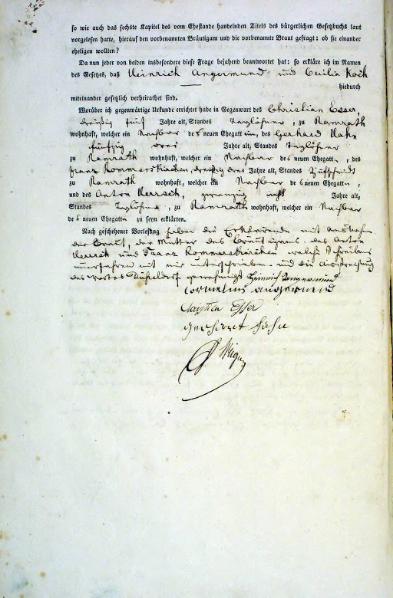 so wie auch das sechste Kapitel des vom Ehestande handelnden Titels des bürgerlichen Gesetzbuchs laut
vorgelesen hatte, hierauf den vorbenannten Bräutigam und die vorbenannte Braut gefragt: ob sie einander
ehelichen wollten?
Da nun jeder von beiden insbesondere diese Frage bejahend beantwortet hat: so erkläre ich im Namen
des Gesetzes, daß Heinrich Angermund und Cecilia Koch
hiedurch
miteinander gesetzlich verheirathet sind.
Worüber ich gegenwärtige Urkunde errichtet habe in Gegenwart des Christian Esser
dreißig fünf Jahre alt, Standes Taglöhner, zu Hamrath
wohnhaft, welcher ein Nachbar des neuen Ehegatten, des Gerhard Hahn
fünfzig drei Jahre alt, Standes Taglöhner
zu Hamrath wohnhaft, welcher ein Nachbar des neuen Ehegatten, des
Franz Kommerskirchen, dreißig drei Jahre alt, Standes
zu Hamrath wohnhaft, welcher ein Nachbar des neuen Ehegatten,
und des Anton zwanzig acht Jahre alt,
Standes Taglöhner, zu Hamrath wohnhaft, welcher ein Nachbar
des neuen Ehegatten zu seyn erklärten.
Nach geschehener Vorlesung haben die Erklärende mit Ausnahme
der Braut, der Mutter des Bräutigams, des Anton
und Franz Kommerskirchen welche Schreibens
unerfahren mit mir unterschrieben und die
des Wortes Düsseldorf genehmigt Heinrich Angermund
Cornelius angermund
Esser
gerhard Hahn